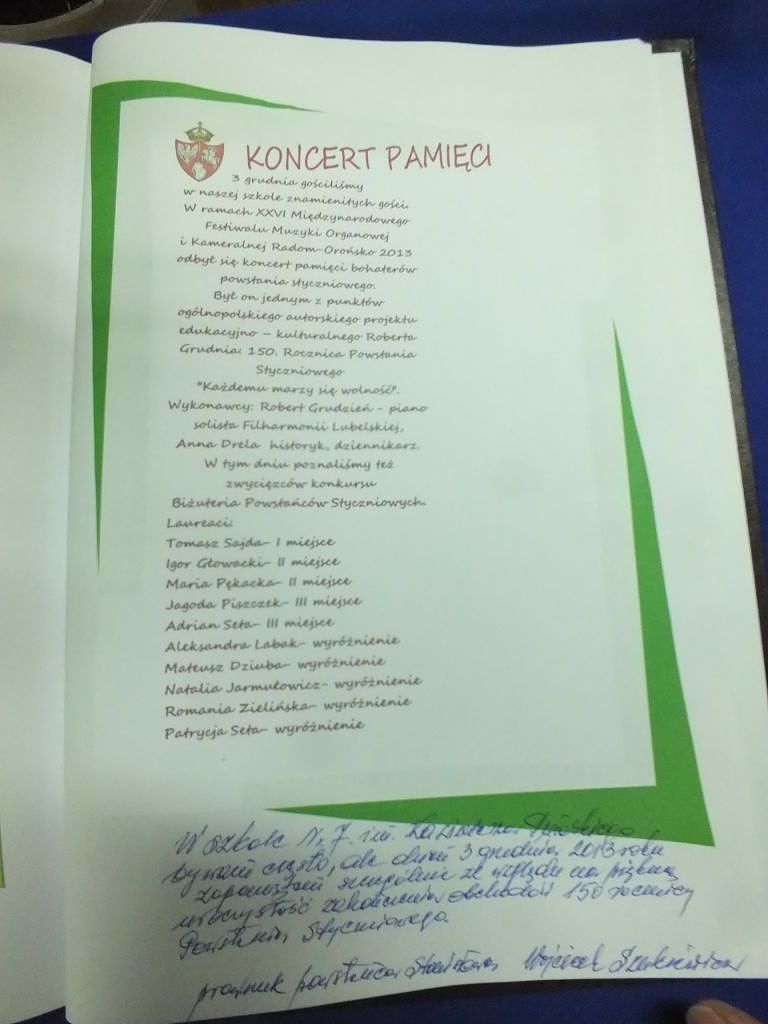 KONCERT PAMIĘCI
3 grudnia gościliśmy
w naszej szkole znamienitych gości.
W ramach XXVI Międzynarodowego
Festiwalu Muzyki Organowej
i Kameralnej Radom-Orońsko 2013
odbył się koncert pamięci bohaterów
powstania styczniowego.
Był on jednym z punktów
ogólnopolskiego autorskiego projektu
edukacyjno - kulturalnego Roberta
Grudnia: 150. Rocznica Powstania
Styczniowego
"Każdemu marzy się wolność".
Wykonawcy: Robert Grudzień - piano
solista Filharmonii Lubelskiej,
Anna Drela historyk, dziennikarz.
W tym dniu poznaliśmy też
zwycięzców konkursu
Biżuteria Powstańców Styczniowych.
Laureaci:
Tomasz Sajda- I miejsce
Igor Głowacki- II miejsce
Maria Pękacka- II miejsce
Jagoda Piszczek- III miejsce
Adrian Seta- III miejsce
Aleksandra Labak- wyróżnienie
Mateusz Dziuba- wyróżnienie
Natalia Jarmułowicz- wyróżnienie
Romania Zielińska- wyróżnienie
Patrycja Seta- wyróżnienie
W szkole Nr 7 im.
bywam często, ale dzień 3 grudnia 2013 roku
szczególnie ze względu na piękną
uroczystość zakończenia obchodów 150 rocznicy
Powstania Styczniowego.
prawnuk powstańca Stanisława Wojciech